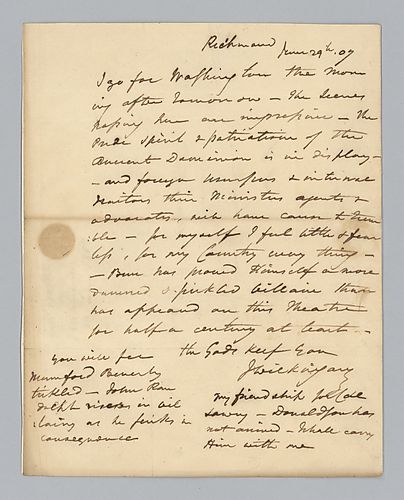 Richmond June 29th. 07
I go for Washington the Morn
ing after tomorrow – The Scenes
passing here are impressive – the
Pride Spirit & patriotism of the
Ancient Dominion is in display –
– and foreign Usurpers & internal
traitors their Ministers agents &
advocates, will have cause to Trem
ble – for myself I feel little & fear
less, for my Country every thing –
– Burr has proved Himself a more
damned & pickled villain than
has appeared on this Theatre
for half a century at least –
the Gods keep You
J Wilkinson
you will see
Mumford Beverly
tickled – John Ran
dolph rises in vil
lainy as he sinks in
consequence
my friendship to Cole
– Donaldson has
not arrived – I shall carry
Him with me